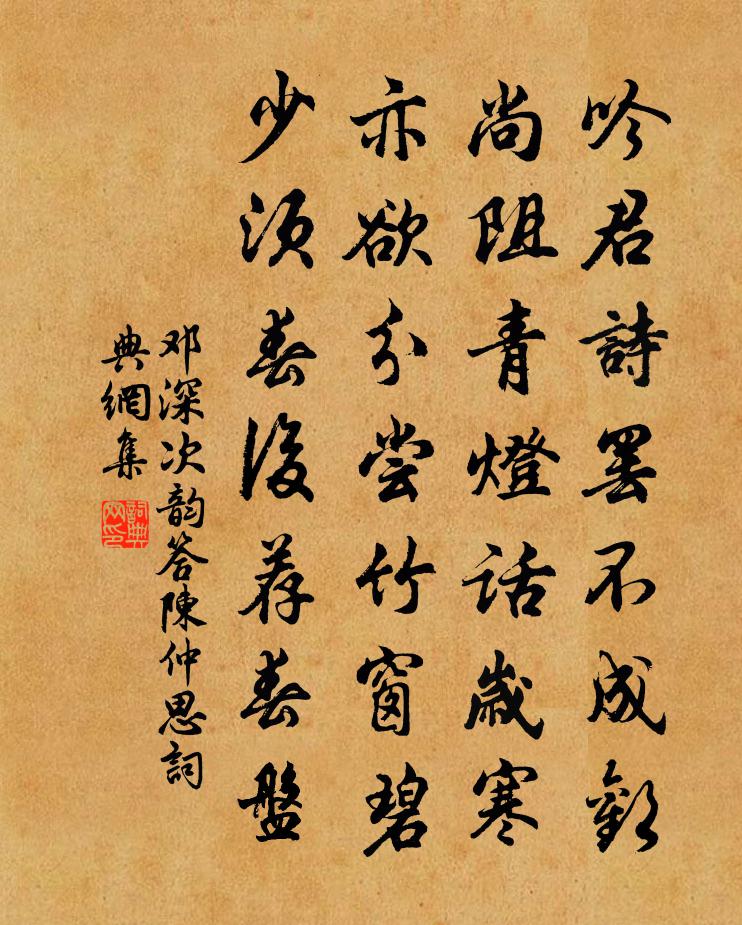 吟君詩罢不成歡
尚阻青燈話歲寒
亦欲分尝竹窗碧
少須春後荐春盤
邓深次韵答陳仲思詞
典網集
詞典
网印